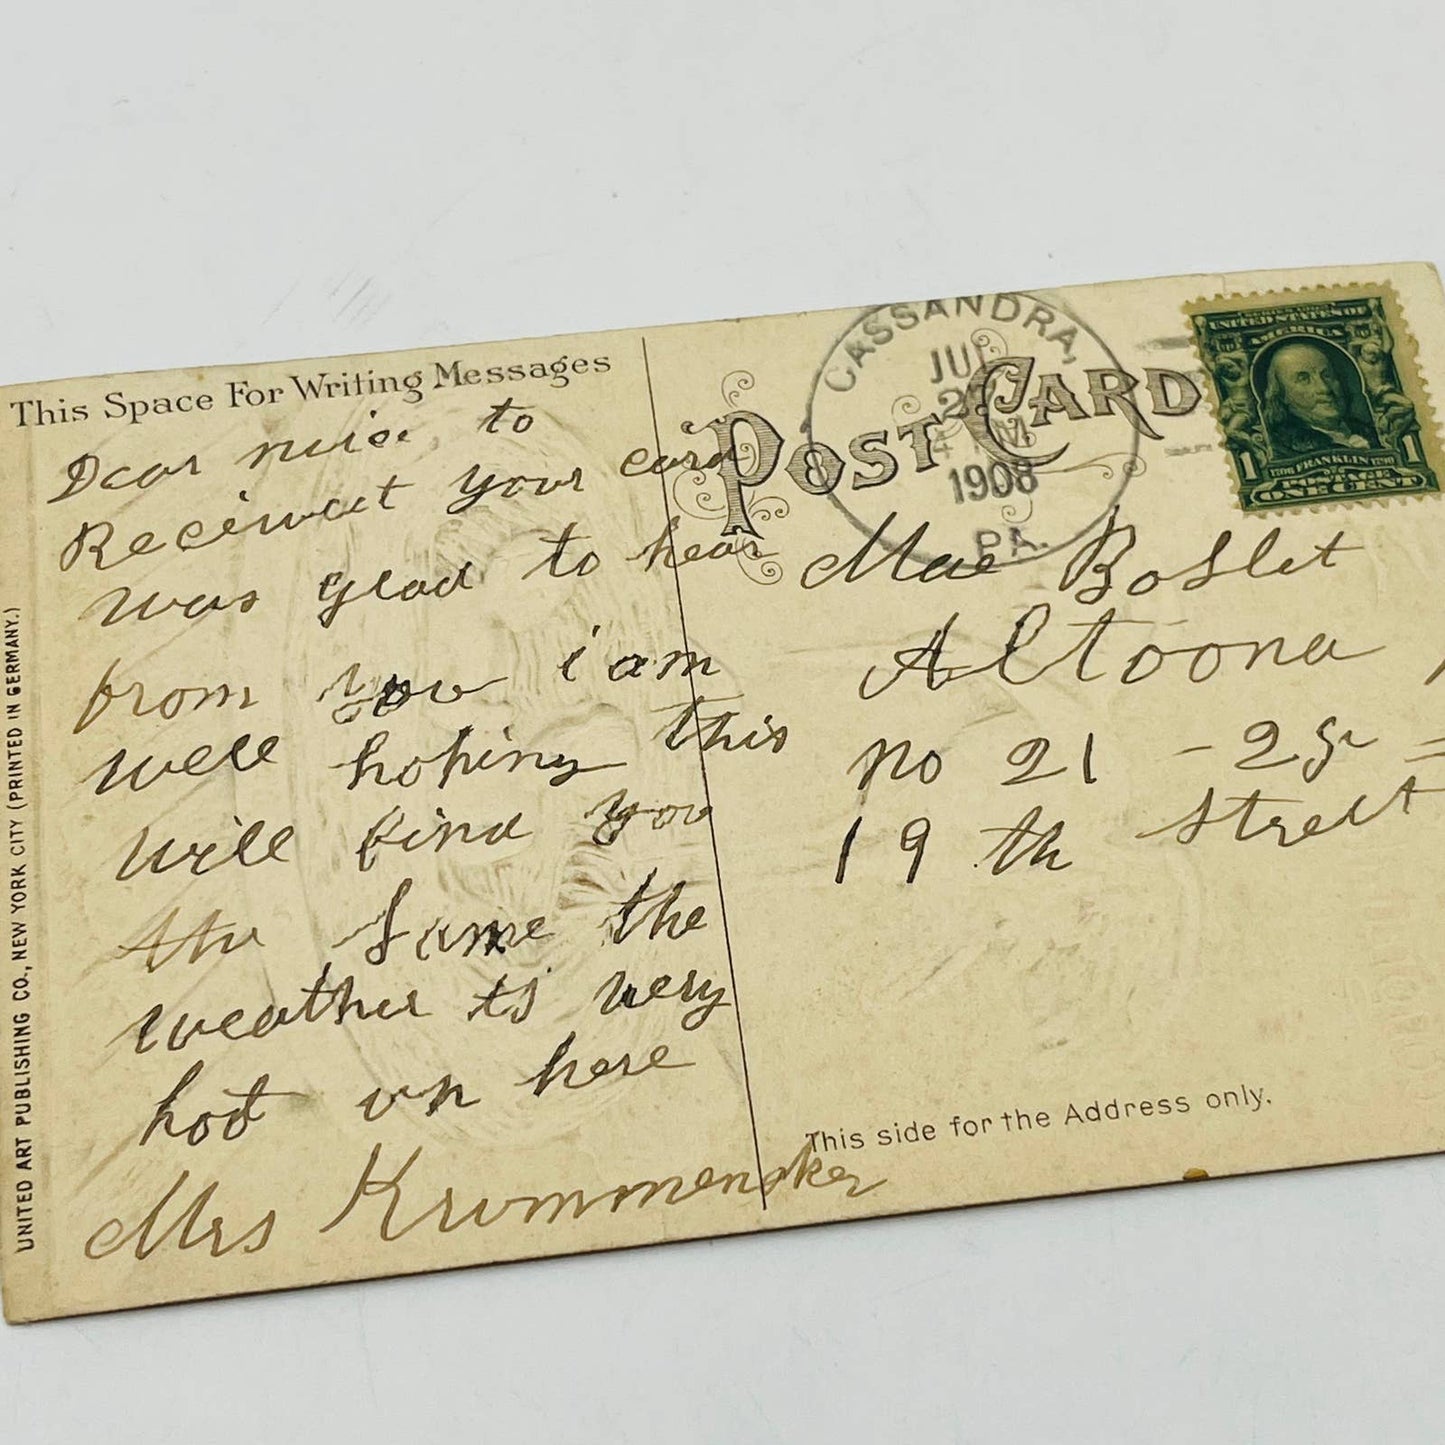 This Space For Writing Messages
Dear niice to
Receiveat your card
was glad to hear
from you i am
well hoping this
will find you
the same the
weather is very
hot un here
Mrs Krummenoker
UNITED ART PUBLISHING CO., NEW YORK CITY (PRINTED IN GERMANY.)
POST CARD
CASSANDRA,
JUL
1908
PA.
UNITED STATES OF
AMERICA
1 FRANKLIN 1
POSTAGE
ONE CENT
Mae Boslet
Altoona
no 21 - 2
19 th street
This side for the Address only.